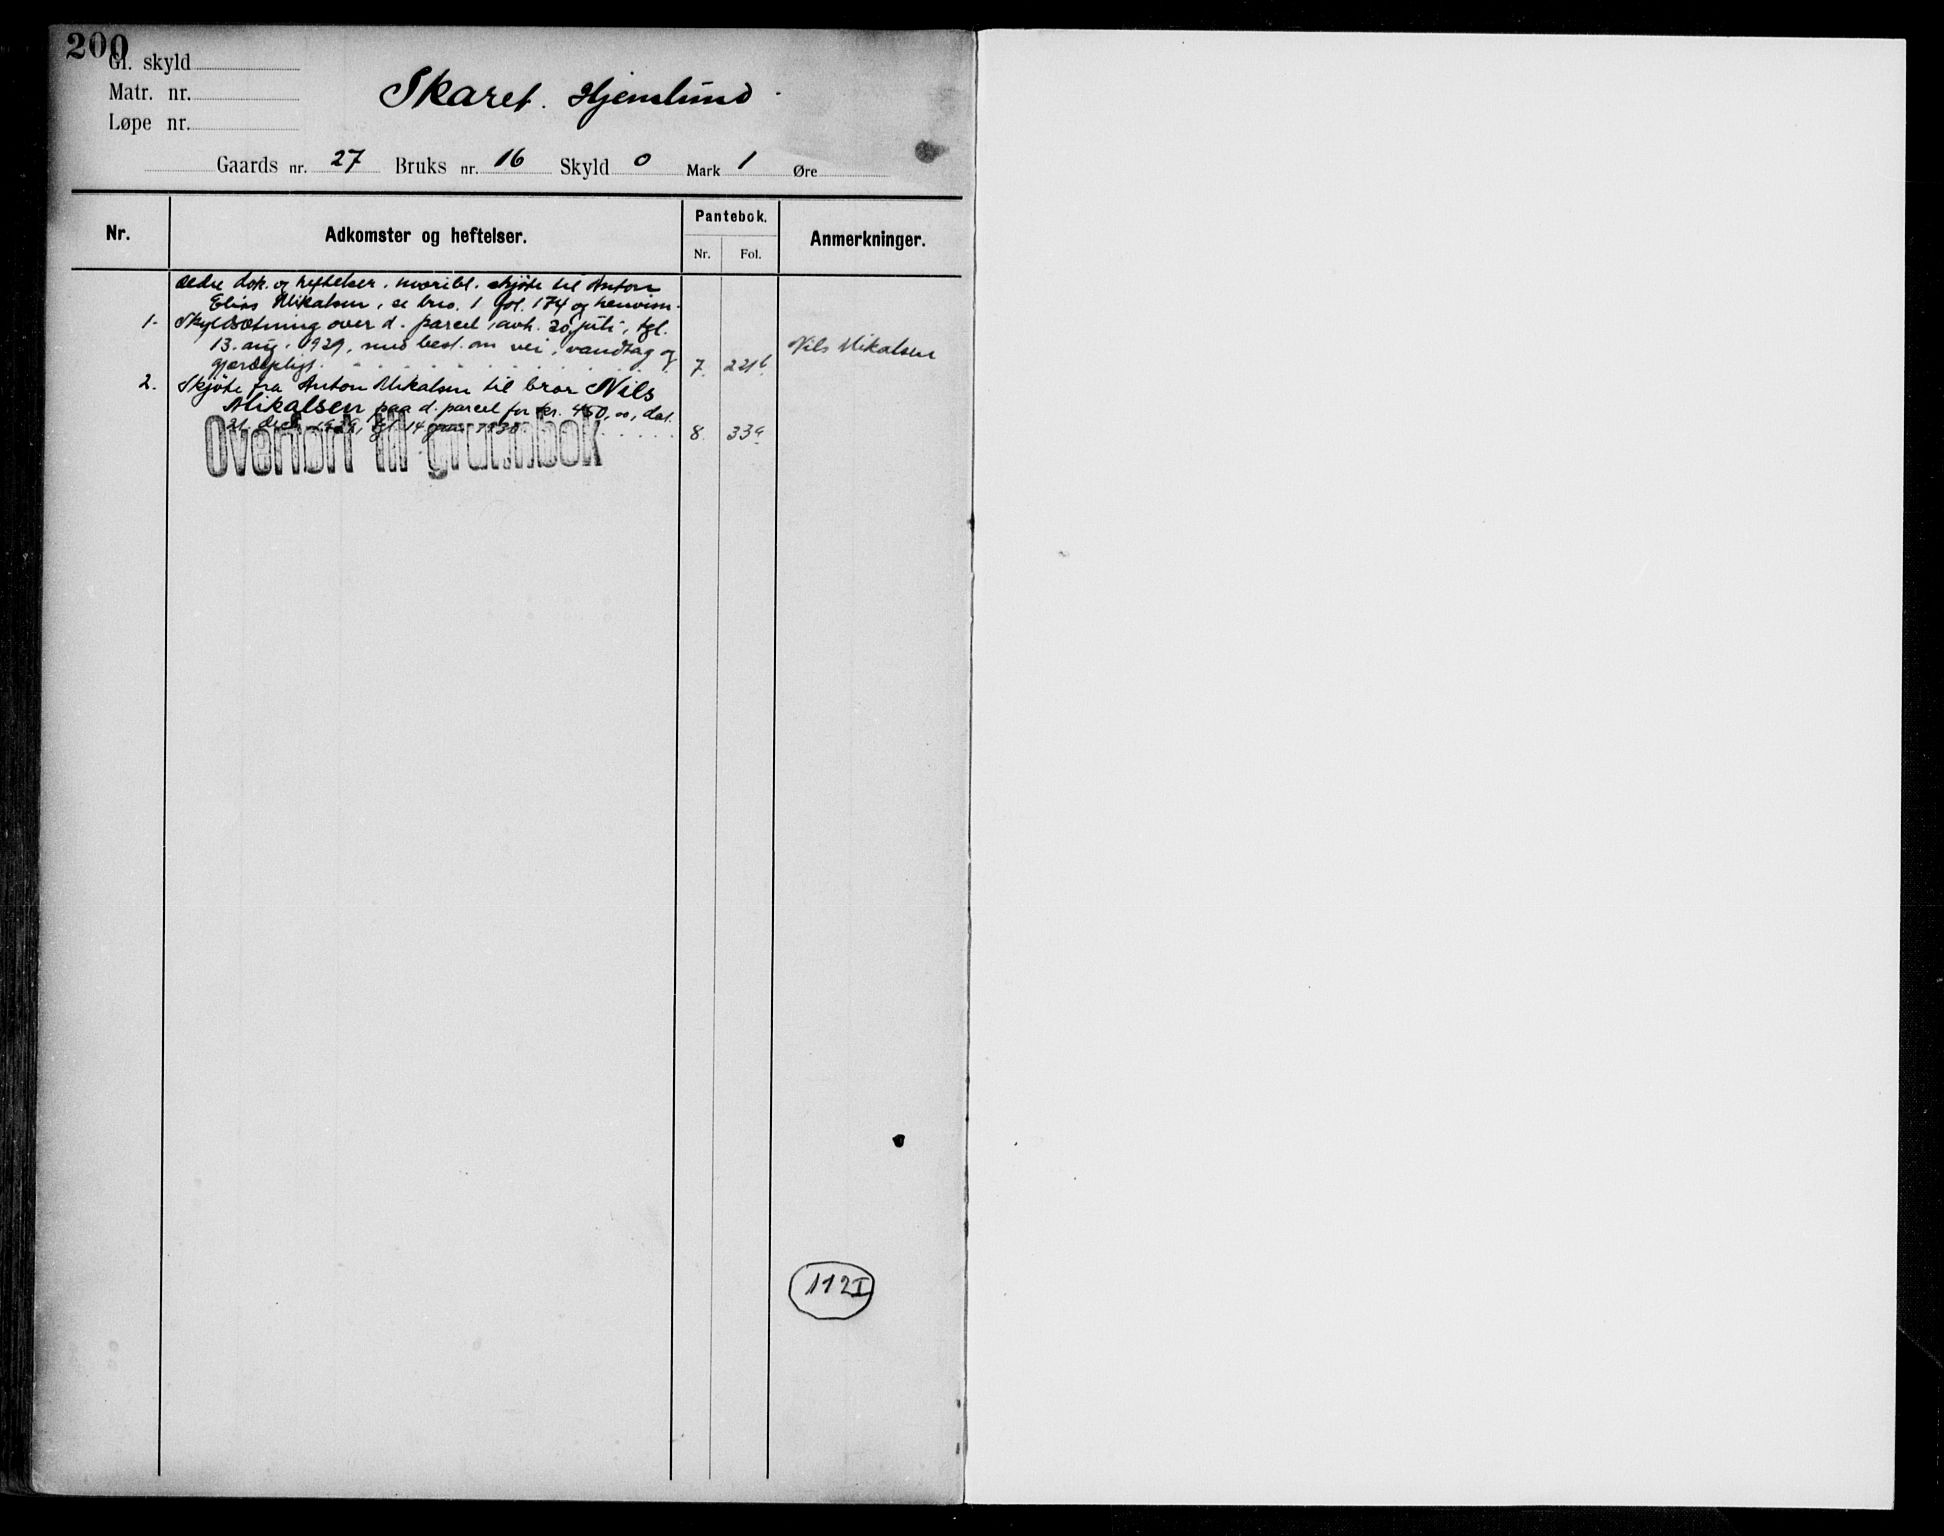 200
Gl. skyld
Matr. nr.
Løpe nr.
Skaret. Hjemlund
Gaards nr. 27 Bruks nr. 16 Skyld 0 Mark 1 Øre
Nr. Adkomster og heftelser. Pantebok. Anmerkninger.
Nr. Fol.
Ældre dok. og heftelser, hvoribl. skjøte til Anton
Elias Mikalsen, se brno. 1 fol. 174 og henvisn.
1. Skyldsætning over d. parcel, avh. 20 juli, tgl.
13. aug. 1929, med best. om vei, vandtag og
gjærdepligt. 7. 221b Nils Mikalsen
2. Skjøte fra Anton Mikalsen til bror Nils
Mikalsen paa d. parcel for kr. 450,00, dat.
21. des. 1929, tgl. 14 1930 8. 33a
Overført til grunnbok
112I